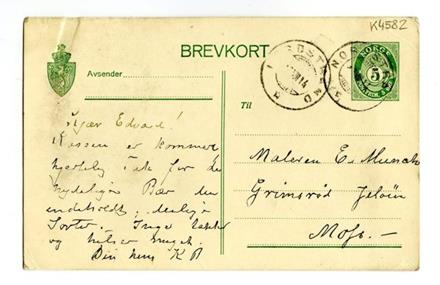 K4582
BREVKORT
Avsender
NORGE
5
Til
Kjær Edvard!
Kassen er kommet
hjertelig Tak for de
nydelige Bær den
indeholdt, deilige
Sorter. - Inge takker
og hilser meget.
Din
Maleren E. Munch
Grimsrød Jeløen
Moss. -